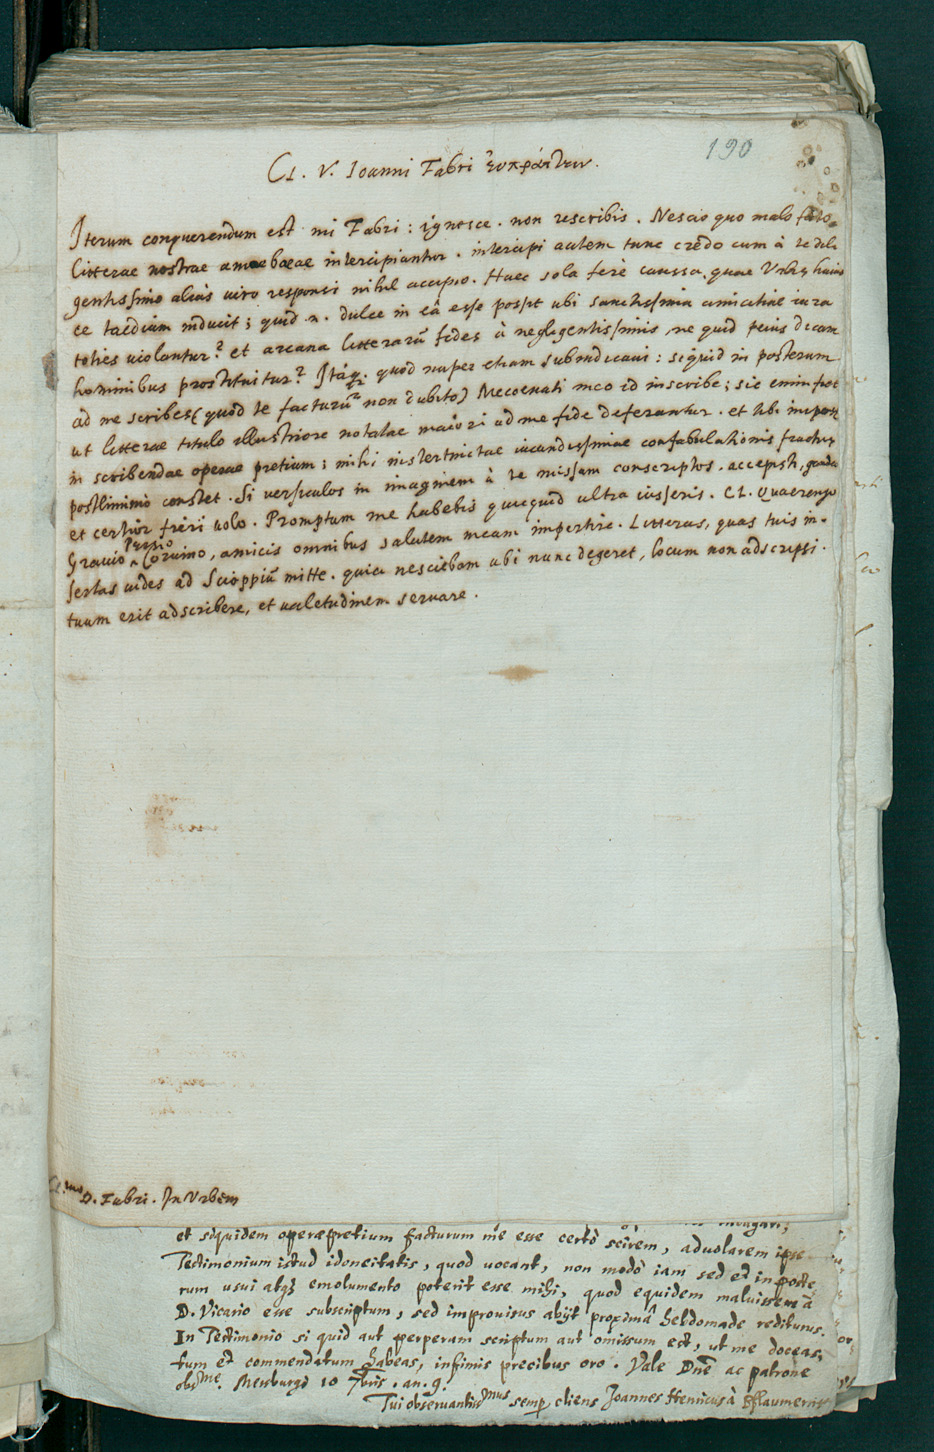 190
Cl. V. Ioanni Fabri εὐπράττειν.
Iterum conquerendum est mi Fabri : ignosce . non rescribis . Nescio quo malo fato
litterae nostrae amoebaeae intercipiantur . intercipi autem tunc credo cum à te dili
gentissimo aliàs viro responsi nihil accipio . Haec sola ferè caussa, quae Urbis huius
ce taedium inducit ; quid n. dulce in eâ esse possit ubi sanctissima amicitiae iura
toties violantur? et arcana litterarũ fides à negligentissimis, ne quid peius dicam
hominibus prostituitur? Itáq. quòd nuper etiam subindicavi : siquid in posterum
ad me scribes (quòd te facturũ non dubito) Mecoenati meo id inscribe ; sic enim fiet
ut litterae titulo illustriore notatae maiori ad me fide deferantur . et tibi
in scribendae operae pretium ; mihi iucundissimae confabulationis fructus
postliminiò constet . Si versiculos in imaginem à te missam conscriptos . accepisti,
et certior fieri volo . Promptum me habebis quicquid ultra iusseris . Cl. Quaerengo
Persio
Gravio ^ Corvino, amicis omnibus salutem meam impertire . Litteras, quas tuis in-
sertas vides ad Scioppiũ mitte . quia nesciebam ubi nunc degeret, locum non adscripsi .
tuum erit adscribere, et valetudinem servare .
Cl.mo D. Fabri . In Urbem
et siquidem operæpretium facturum me esse certò scirem, advolarem ipse
Testimonium istud idoneitatis, quod vocant, non modò iam sed et in poste
rum usui atq3 emolumento poterit esse mihi, quod equidem maluissem à
D. Vicario esse subscriptum, sed improvisus abijt proximâ hebdomade rediturus.
In Testimonio si quid aut perperam scriptum aut omissum est, ut me doceas,
tum et commendatum habeas, infimis precibus oro . Vale Dnẽ ac patrone
obsme. Mersburgi 10 7bris . an. 9.
Tui observantissmus semp cliens Joannes Henricus à Pflaumern